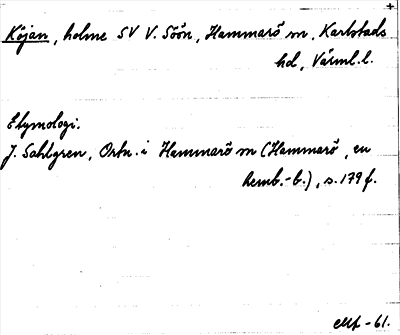 Köjan, holme SV V. Söön, Hammarö sn, Karlstads
hd, Värml. l.
Etymologi.
J. Sahlgren, Ortn. i Hammarö sn (Hammarö, en
hemb.-b.), s. 179 f.
-61.